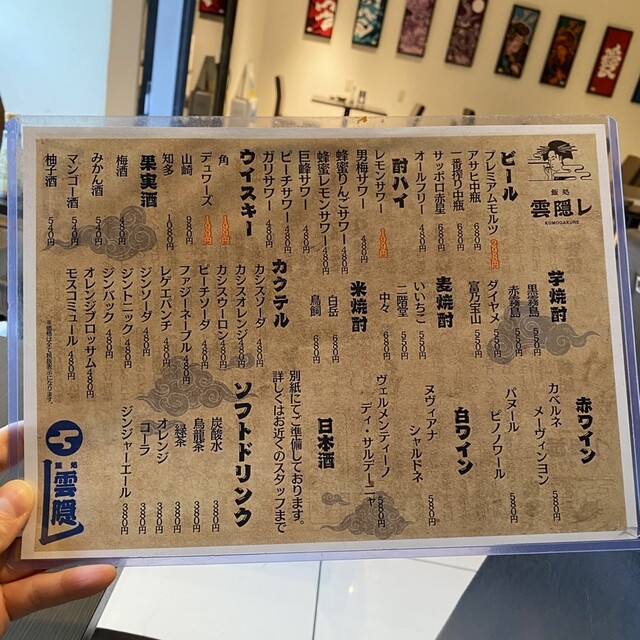 飯処
雲隠レ
KUMOGAKURE
ビール
プレミアムモルツ
アサヒ中瓶 680円
一番搾り中瓶 680円
サッポロ赤星 680円
オールフリー 480円
酎ハイ
レモンサワー
男梅サワー 480円
蜂蜜りんごサワー 480円
蜂蜜レモンサワー 480円
巨峰サワー 480円
ピーチサワー 480円
ガリサワー 480円
ウイスキー
角
デュワーズ
山崎 980円
知多 1080円
果実酒
梅酒 480円
みかん酒 540円
マンゴー酒 540円
柚子酒 540円
芋焼酎
黒霧島 550円
赤霧島 550円
ダイヤメ 550円
富乃宝山 550円
麦焼酎
いいちこ 550円
二階堂 550円
中々 680円
米焼酎
白岳 680円
鳥飼 680円
カクテル
カシスソーダ 480円
カシスオレンジ 480円
カシスウーロン 480円
ピーチソーダ 480円
ファジーネーブル 480円
レゲエパンチ 480円
ジンソーダ 480円
ジントニック 480円
ジンバック 480円
オレンジブロッサム 480円
モスコミュール 480円
※価格は全て税抜表示になります。
赤ワイン
カベルネ
メーヴィンヨン 580円
パヌール
ピノノワール 580円
白ワイン
シャルドネ
ヌヴィアナ 580円
ヴェルメンティーノ
ディ・サルデーニャ 580円
日本酒
別紙にてご準備しております。
詳しくはお近くのスタッフまで
ソフトドリンク
炭酸水 380円
烏龍茶 380円
緑茶 380円
オレンジ 380円
コーラ 380円
ジンジャーエール 380円
雲隠レ